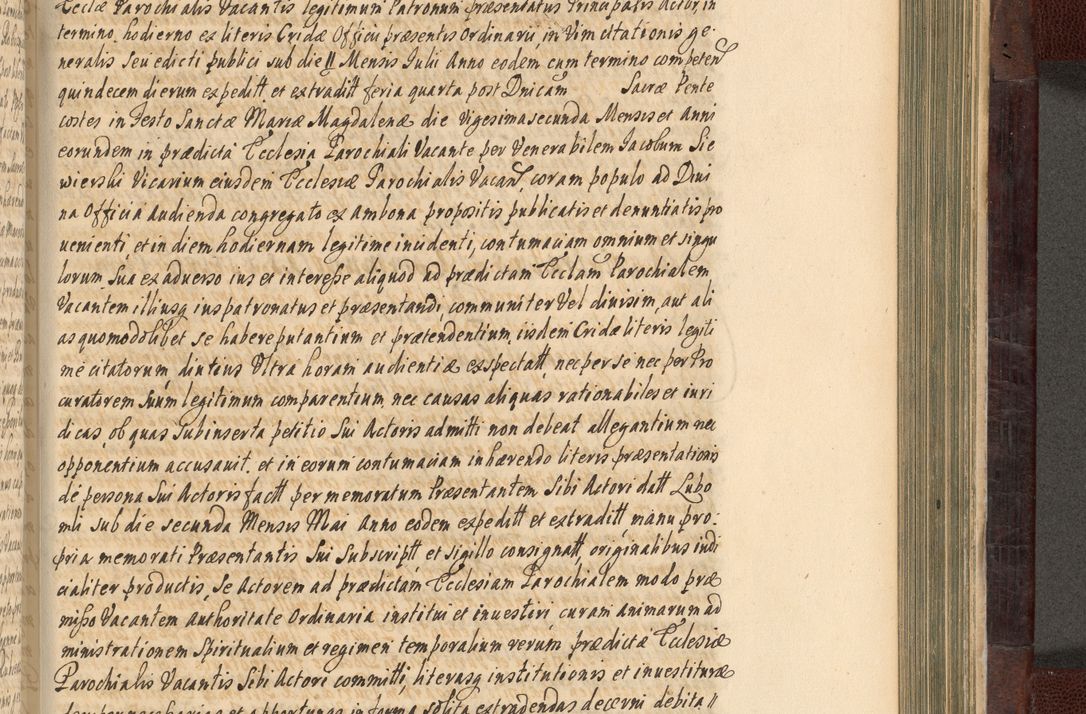 Eccłæ Parochialis Vacantis legitimum Patronum præsentatus Principalis Actor, in
termino hodierno ex literis Cridæ Officii præsentis Ordinarii, in Vim citationis ge-
neralis seu edicti publici sub die 11 Mensis Iulii Anno eodem cum termino competen
quindecem dierum expeditt et extraditt feria quarta post Dnicam Sacræ Pente
costes in Festo Sanctæ Mariæ Magdalenæ die Vigesima secunda Mensis et Anni
eorundem in prædicta Ecclesia Parochiali Vacante per Venerabilem Iacobum Sie
wierski Vicarium eiusdem Ecclesiæ Parochialis Vacan, coram populo ad Divi
na Officia Audienda congregato ex Ambona propositis publicatis et denuntiatis pro
venienti, et in diem hodiernam legitime incidenti, contumaciam omnium et singu
lorum sua ex adverso ius et interesse aliquod ad prædictam Ecclam Parochialem
Vacantem illiusq ius patronatus et præsentandi, communiter Vel divisim, aut ali
as quomodolibet se habere putantium et prætendentium, iisdem Cridæ literis legiti
me citatorum, diutius Vltra horam audientiæ exspectatt, nec per se nec per Pro
curatorem suum legitimum comparentium, nec causas aliquas rationabiles et iuri
dicas, ob quas subinserta petitio sui Actoris admitti non debeat allegantium nec
opponentium accusavit, et in eorum contumaciam inhærendo literis præsentationis
de persona sui Actoris factt per memoratum Præsentantem sibi Actori datt Lubo
mli sub die secunda Mensis Mai Anno eodem expeditt et extraditt, manu pro-
pria memorati Præsentantis sui subscriptt et sigillo consignatt, originalibus iudi
cialiter productis, se Actorem ad prædictam Ecclesiam Parochialem modo præ
misso Vacantem Authoritate Ordinaria institui et investiri, curam Animarum ad
ministrationem Spiritualium et regimen temporalium rerum prædictæ Ecclesiæ
Parochialis Vacantis sibi Actori committi, literasq institutionis et investituræ
desuper necessarias et opportunas in forma solita extradendas decerni debita